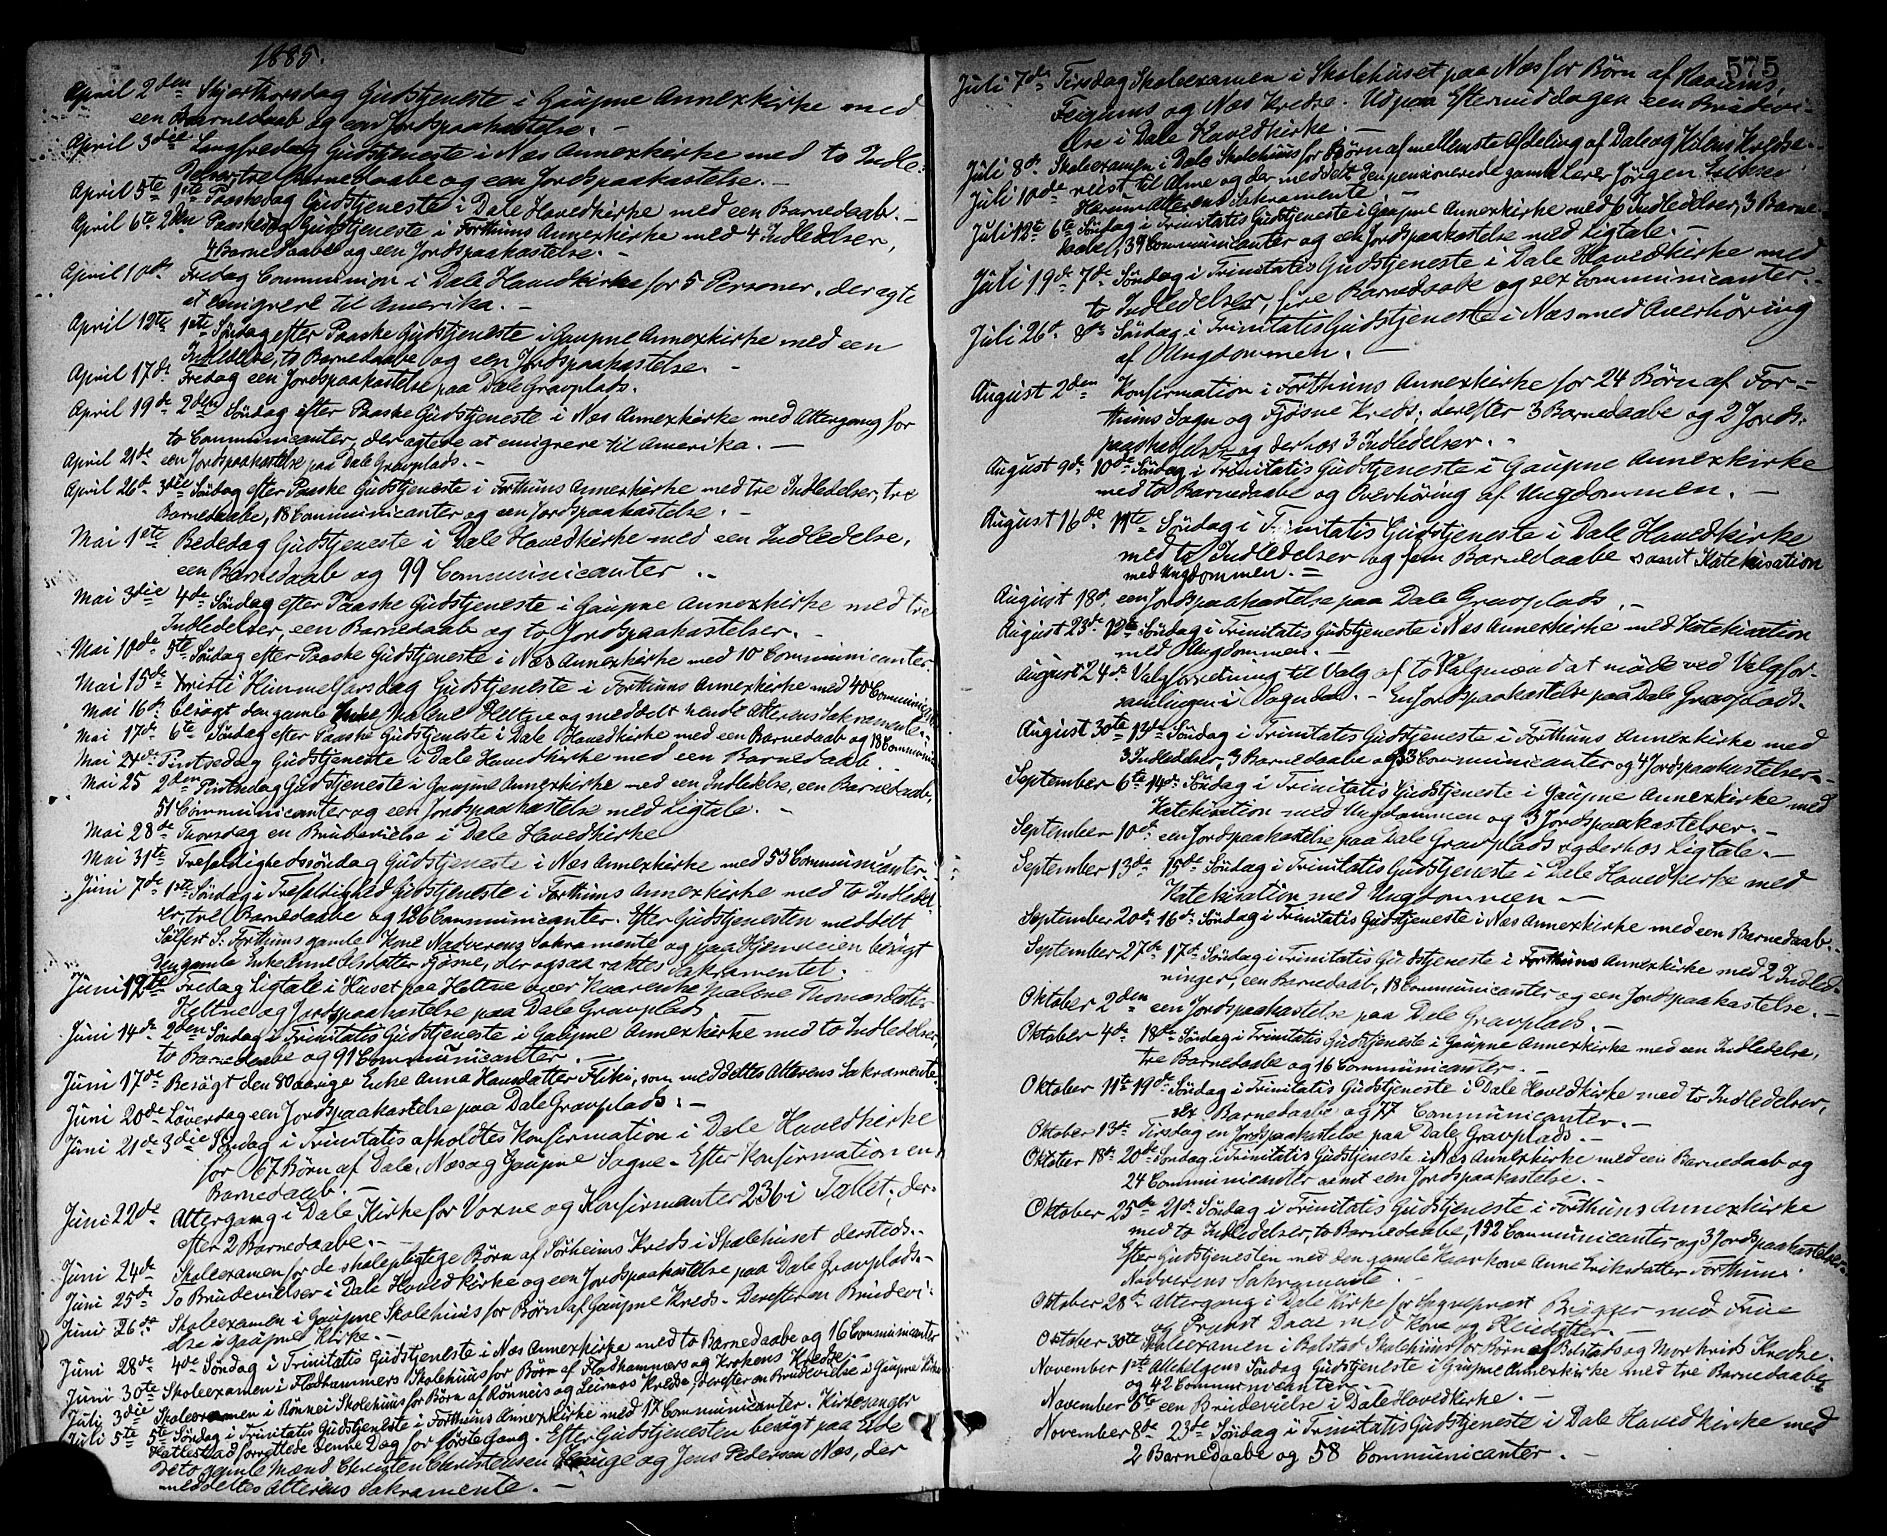 1885.
April 2den Skjærthorsdag Gudstjeneste i Gaupne Annexkirke med
een Barnedaab og een Jordspaakastelse. —
April 3die Langfredag Gudstjeneste i Næs Annexkirke med to Indle-
delser, tre Barnedaabe og een Jordspaakastelse. —
April 5te 1ste Paaskedag Gudstjeneste i Dale Hovedkirke med een Barnedaab. —
April 6te 2den Paaskedag Gudstjeneste i Forthuns Annexkirke med 4 Indledelser,
4 Barnedaabe og een Jordspaakastelse. —
April 10de Fredag Communion i Dale Hovedkirke for 5 Personer, der agte
at emigrere til Amerika. —
April 12te 1ste Søndag efter Paaske Gudstjeneste i Gaupne Annexkirke med een
Indledelse, to Barnedaabe og een Jordspaakastelse. —
April 17de Fredag een Jordspaakastelse paa Dale Gravplads.
April 19de 2den Søndag efter Paaske Gudstjeneste i Næs Annexkirke med Altergang for
to Communicanter, der agtede at emigrere til Amerika. —
April 21de een Jordspaakastelse paa Dale Gravplads. —
April 26de 3die Søndag efter Paaske Gudstjeneste i Forthuns Annexkirke med tre Indledelser, tre
Barnedaabe, 18 Communicanter og een Jordspaakastelse. —
Mai 1ste Bededag Gudstjeneste i Dale Hovedkirke med een Indledelse,
een Barnedaab og 99 Communicanter. —
Mai 3die 4de Søndag efter Paaske Gudstjeneste i Gaupne Annexkirke med tre
Indledelser, een Barnedaab og to Jordspaakastelser. —
Mai 10de 5te Søndag efter Paaske Gudstjeneste i Næs Annexkirke med 10 Communicanter.
Mai 15de Kristi Himmelfarsdag Gudstjeneste i Forthuns Annexkirke med 40 Communi
Mai 16de besøgt den gamle Enke Malene Heltne og meddelt hende Alterens Sakramente. —
Mai 17de 6te Søndag efter Paaske Gudstjeneste i Dale Hovedkirke med een Barnedaab og 18 Commun
Mai 24de Pintsedag Gudstjeneste i Dale Hovedkirke med een Barnedaab. —
Mai 25 2den Pintsedag Gudstjeneste i Gaupne Annexkirke med een Indledelse, een Barnedaab,
51 Communicanter og een Jordspaakastelse med Ligtale. —
Mai 28de Thorsdag en Brudevielse i Dale Hovedkirke
Mai 31te Trefoldighedssøndag Gudstjeneste i Næs Annexkirke med 53 Communicanter.
Juni 7de 1ste Søndag i Trefoldighed Gudstjeneste i Forthuns Annexkirke med to Indledel-
ser, tre Barnedaabe og 126 Communicanter. Efter Gudstjenesten meddelt
Sølfest S. Forthuns gamle Kone Nadverens Sakramente og paa Hjemveien besøgt
den gamle Enke Anne Olsdatter Fjøsne, der ogsaa raktes Sakramentet.
Juni 12te Fredag Ligtale i Huset paa Heltne over Kaarenke Malene Thomasdatter
Heltne og Jordspaakastelse paa Dale Gravplads
Juni 14de 2den Søndag i Trinitatis Gudstjeneste i Gaupne Annexkirke med to Indledelser,
to Barnedaabe og 91 Communicanter. —
Juni 17de Besøgt den 80 aarige Enke Anna Hansdatter Flikki, som meddeltes Alterens Sakramente.
Juni 20de Løverdag een Jordspaakastelse paa Dale Gravplads. —
Juni 21de 3die Søndag i Trinitatis afholdtes Konfirmation i Dale Hovedkirke
for 67 Børn af Dale, Næs og Gaupne Sogne. Efter Konfirmationen en
Barnedaab. —
Juni 22de Altergang i Dale Kirke for Voxne og Konfirmanter 236 i Tallet; der-
efter 2 Barnedaabe. —
Juni 24de Skoleexamen for de skolepligtige Børn af Sørheims Kreds i Skolehuset dersteds. —
Juni 25de To Brudevielser i Dale Hovedkirke og een Jordspaakastelse paa Dale Gravplads. —
Juni 26de Skoleexamen i Gaupne Skolehuus for Børn af Gaupne Kreds. Derefter en Brudevi-
else i Gaupne Kirke. —
Juni 28de 4de Søndag i Trinitatis Gudstjeneste i Næs Annexkirke med to Barnedaabe og 16 Communicanter
Juni 30te Skoleexamen i Flodhammers Skolehuus for Børn af Flodhammers og Krokens Kredse.
Juli 3die Skoleexamen i Rønnei Skolehuus for Børn af Rønneis og Leirmos Kredse, derefter en Brudevielse i Gaupne Kirke
Juli 5te 5te Søndag i Trinitatis Gudstjeneste i Forthuns Annexkirke med 17 Communicanter. Kirkesanger
Hatlestad forrettede denne Dag for første Gang. Efter Gudstjenesten besøgt paa Eide
de to gamle Mænd Christen Christensen Hauge og Jens Pedersen Næs, der
meddeltes Alterens Sakramente. —
575
Juli 7de Tirsdag Skoleexamen i Skolehuset paa Næs for Børn af Havums,
Feigums og Næs Kredse. Ud paa Eftermiddagen een Brudevi-
else i Dale Hovedkirke. —
Juli 8de Skoleexamen i Dale Skolehuus for Børn af mellemste Afdeling af Dale og Kilens Kredse. —
Juli 10de reist til Alme og der meddelt den pensionerede gamle Lærer Jørgen Eriksen
Alterens Sakramente
Juli 12te 6te Søndag i Trinitatis Gudstjeneste i Gaupne Annexkirke med 6 Indledelser, 3 Barne-
daabe, 39 Communicanter og een Jordspaakastelse med Ligtale. —
Juli 19de 7de Søndag i Trinitatis Gudstjeneste i Dale Hovedkirke med
to Indledelser, fire Barnedaabe og sex Communicanter. —
Juli 26de 8de Søndag i Trinitatis Gudstjeneste i Næs med Overhøring
af Ungdommen. —
August 2den Konfirmation i Forthuns Annexkirke for 24 Børn af For-
thuns Sogn og Fjøsne Kreds; derefter 3 Barnedaabe og 2 Jords-
paakastelser og derhos 3 Indledelser. —
August 9de 10de Søndag i Trinitatis Gudstjeneste i Gaupne Annexkirke
med to Barnedaabe og Overhøring af Ungdommen. —
August 16de 11te Søndag i Trinitatis Gudstjeneste i Dale Hovedkirke
med to Indledelser og fem Barnedaabe samt Katekisation
med Ungdommen. —
August 18de een Jordspaakastelse paa Dale Gravplads. —
August 23de 12te Søndag i Trinitatis Gudstjeneste i Næs Annexkirke med Katekisation
med Ungdommen. —
August 24de Valgforretning til Valg af to Valgmænd at møde ved Valgfor-
samlingen i Sogndal. — Een Jordspaakastelse paa Dale Gravplads.
August 30te 13de Søndag i Trinitatis Gudstjeneste i Forthuns Annexkirke med
3 Indledelser, 3 Barnedaabe og 33 Communicanter og 4 Jordspaakastelser. —
September 6te 14de Søndag i Trinitatis Gudstjeneste i Gaupne Annexkirke med
Katekisation med Ungdommen og 3 Jordspaakastelser. —
September 10de een Jordspaakastelse paa Dale Gravplads og derhos Ligtale. —
September 13de 15de Søndag i Trinitatis Gudstjeneste i Dale Hovedkirke med
Katekisation med Ungdommen —
September 20de 16de Søndag i Trinitatis Gudstjeneste i Næs Annexkirke med een Barnedaab. —
September 27de 17de Søndag i Trinitatis Gudstjeneste i Forthuns Annexkirke med 2 Indled-
ninger, een Barnedaab, 18 Communicanter og een Jordspaakastelse. —
Oktober 2den een Jordspaakastelse paa Dale Gravplads. —
Oktober 4de 18de Søndag i Trinitatis Gudstjeneste i Gaupne Annexkirke med een Indledelse,
tre Barnedaabe og 16 Communicanter. —
Oktober 11te 19de Søndag i Trinitatis Gudstjeneste i Dale Hovedkirke med to Indledelser,
sex Barnedaabe og 77 Communicanter. —
Oktober 13de Tirsdag en Jordspaakastelse paa Dale Gravplads. —
Oktober 18de 20de Søndag i Trinitatis Gudstjeneste i Næs Annexkirke med een Barnedaab og
24 Communicanter samt een Jordspaakastelse. —
Oktober 25de 21de Søndag i Trinitatis Gudstjeneste i Forthuns Annexkirke
med to Indledelser, to Barnedaabe, 152 Communicanter og 3 Jordspaakastelser. —
Efter Gudstjenesten med den gamle Kaarkone Anne Eriksdatter Forthun
Nadverens Sakramente.
Oktober 28de Altergang i Dale Kirke for Sognepræst Brigger med Frue
og Provst Daae med Kone og Pleiedatter. —
Oktober 30te Skoleexamen i Bolstad Skolehuus for Børn af Bolstads og Morkrids Kredse.
November 1ste Allehelgens Søndag Gudstjeneste i Gaupne Annexkirke med tre Barnedaabe
og 42 Communicanter. —
November 6te een Brudevielse i Dale Hovedkirke. —
November 8de 23de Søndag i Trinitatis Gudstjeneste i Dale Hovedkirke med
2 Barnedaabe og 58 Communicanter. —